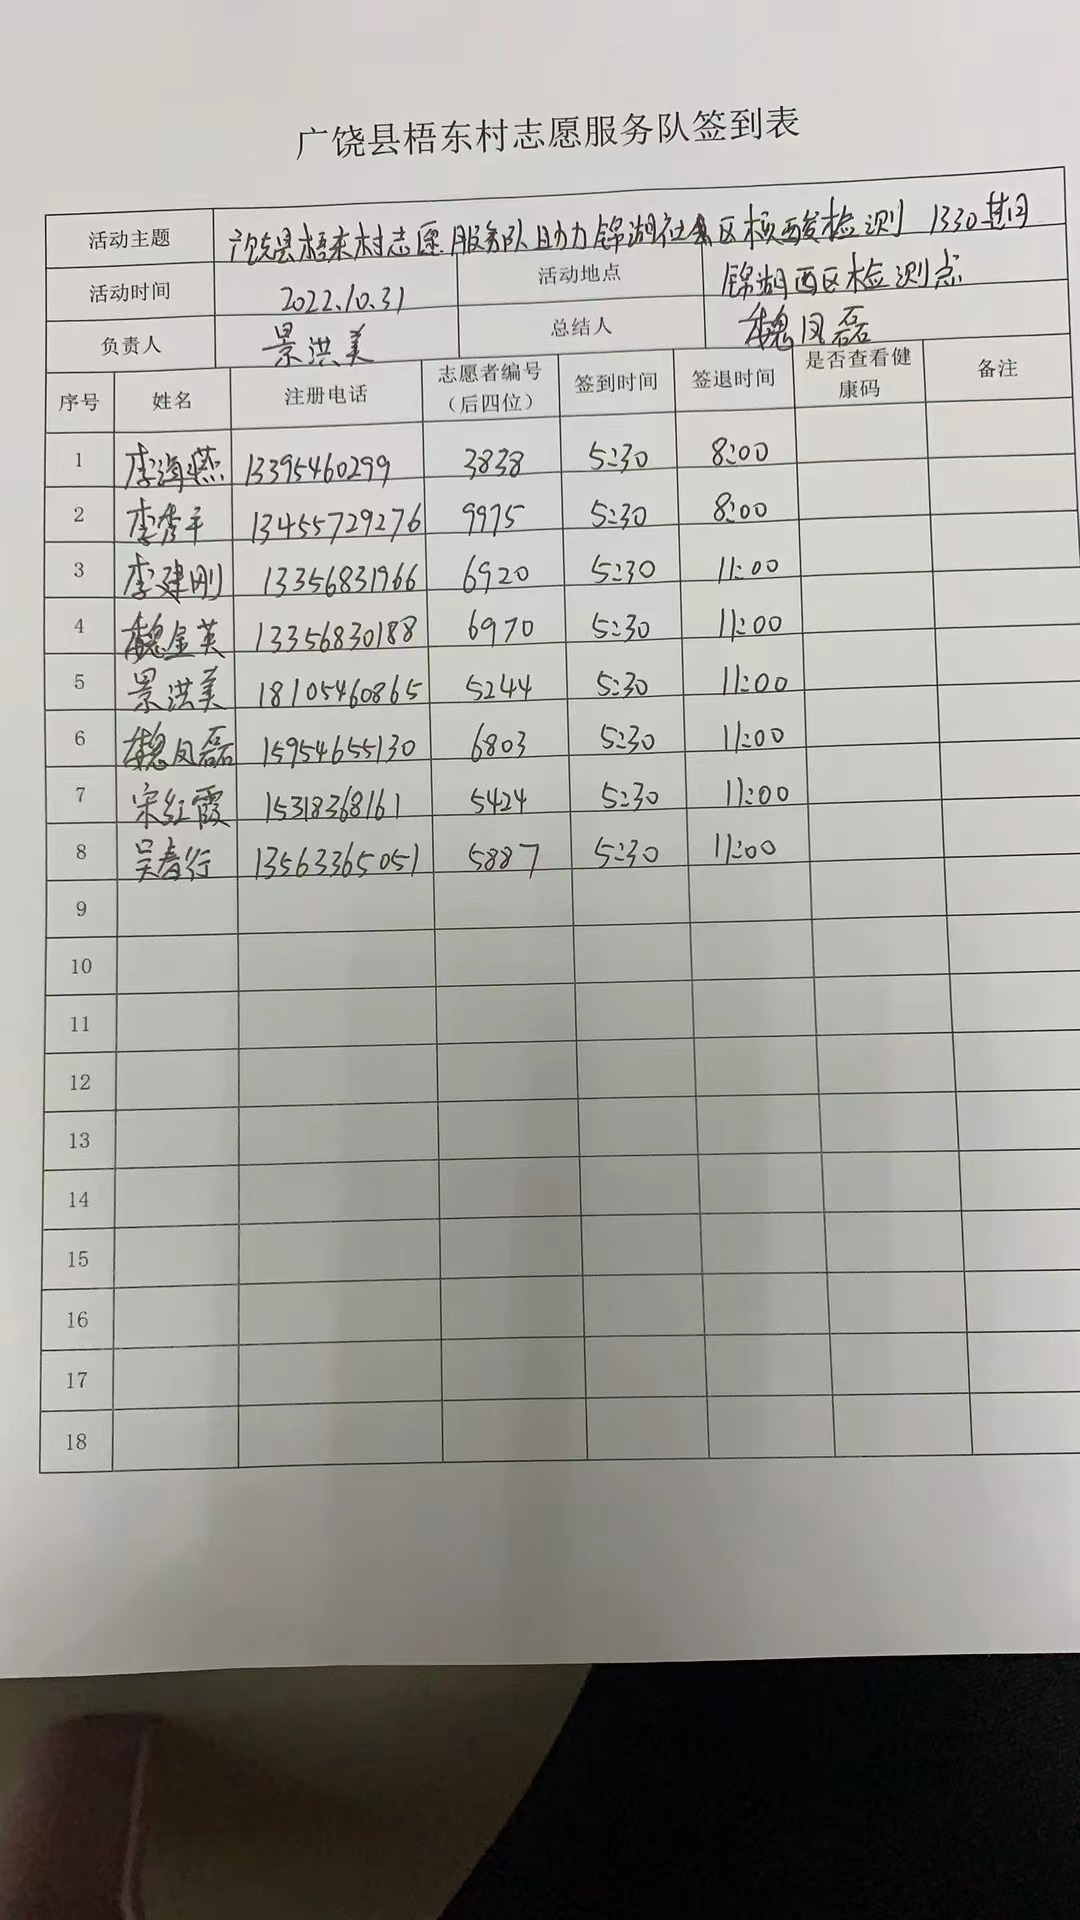 广饶县梧东村志愿服务队签到表
活动主题 广饶县梧东村志愿服务队助力锦湖社区核酸检测 1330共同
活动时间 2022.10.31 活动地点 锦湖西区检测点
负责人 景洪美 总结人 魏凤磊
序号 姓名 注册电话 志愿者编号（后四位） 签到时间 签退时间 是否查看健康码 备注
1 李海燕 13395460299 3838 5:30 8:00
2 李秀平 13455729276 9975 5:30 8:00
3 李建刚 13356831966 6920 5:30 11:00
4 魏金英 13356830188 6970 5:30 11:00
5 景洪美 18105460865 5244 5:30 11:00
6 魏凤磊 15954655130 6803 5:30 11:00
7 宋红霞 15318368161 5424 5:30 11:00
8 吴春行 13563365051 5887 5:30 11:00
9
10
11
12
13
14
15
16
17
18